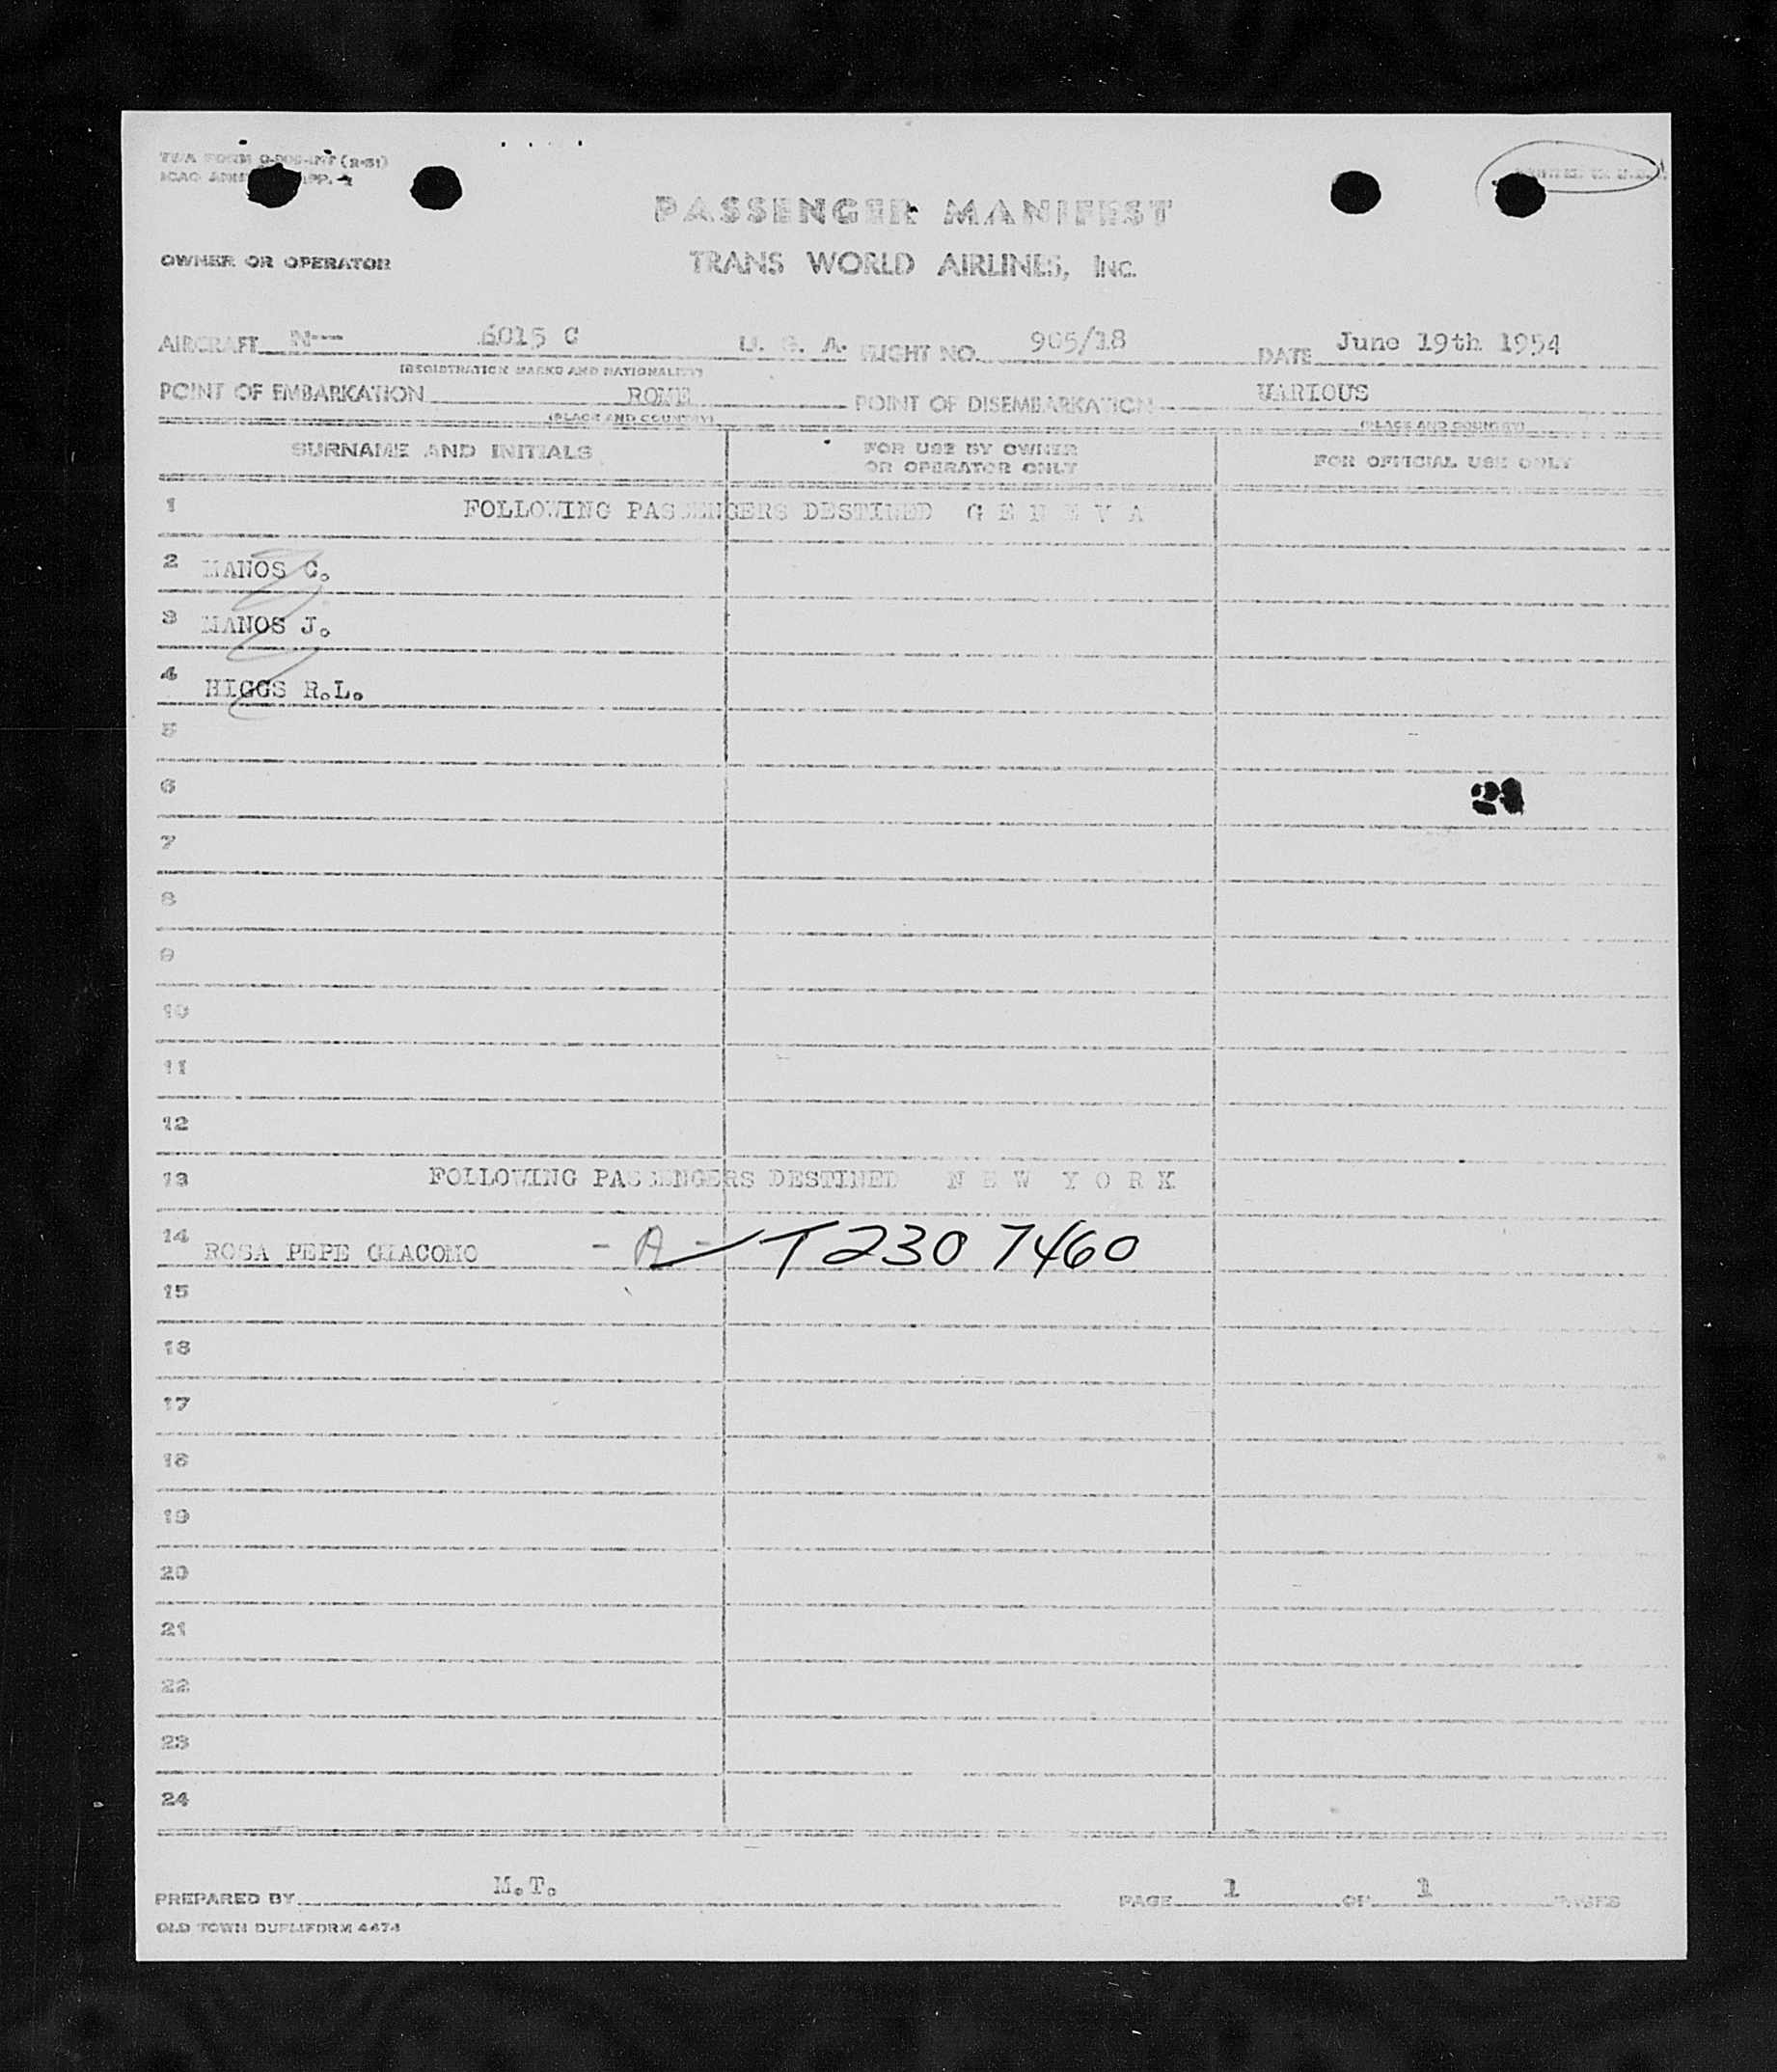 TWA FORM (R-51)
ICAO
PASSENGER MANIFEST
OWNER OR OPERATOR
TRANS WORLD AIRLINES, INC.
AIRCRAFT N-- 6015 C U. S. A. FLIGHT NO. 905/18 DATE June 19th 1954
(REGISTRATION MARKS AND NATIONALITY)
POINT OF EMBARKATION ROME POINT OF DISEMBARKATION VARIOUS
(PLACE AND COUNTRY) (PLACE AND COUNTRY)
SURNAME AND INITIALS FOR USE BY OWNER OR OPERATOR ONLY FOR OFFICIAL USE ONLY
1 FOLLOWING PASSENGERS DESTINED G E N E V A
2 MANOS C.
3 MANOS J.
4 HIGGS R.L.
5
6
7
8
9
10
11
12
13 FOLLOWING PASSENGERS DESTINED N E W Y O R K
14 ROSA PEPE GIACOMO - A - T230 7460
15
16
17
18
19
20
21
22
23
24
PREPARED BY M.T. PAGE 1 OF 1 PAGES
OLD TOWN DUPLIFORM 4474